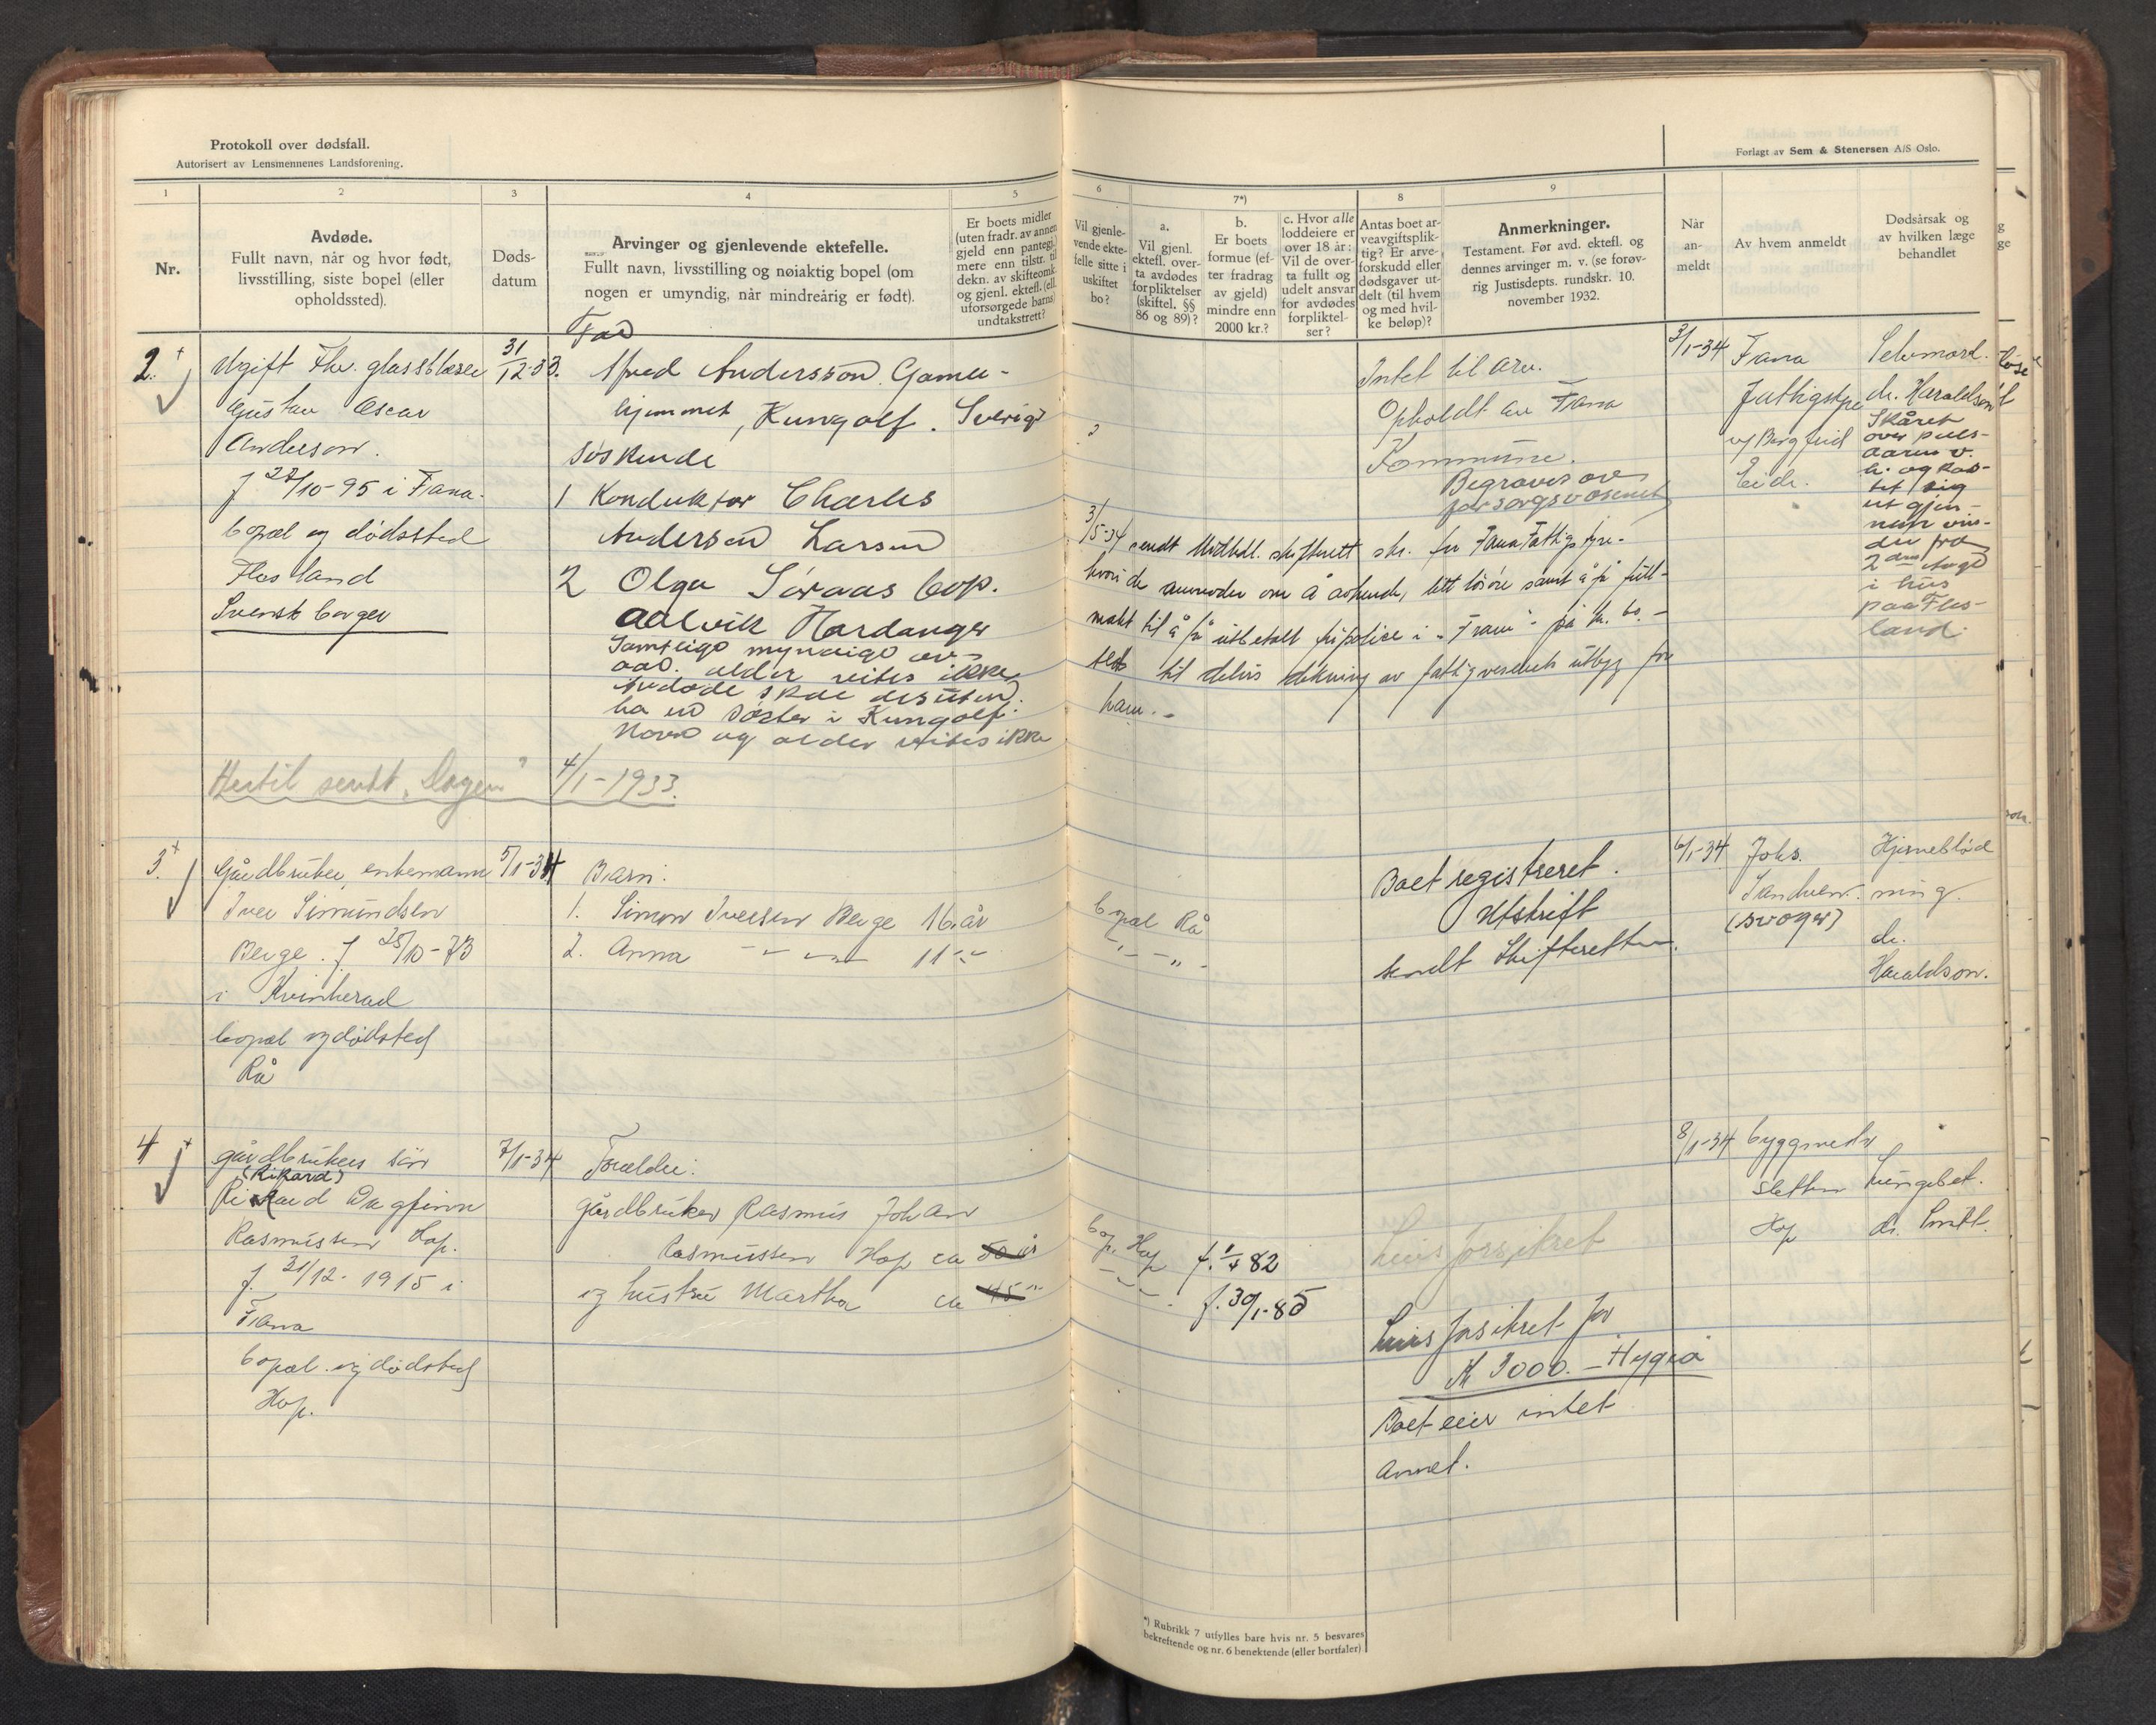 Protokoll over dødsfall.
Autorisert av Lensmennenes Landsforening.
1
2
3
4
5
Nr.
Avdøde.
Fullt navn, når og hvor født,
livsstilling, siste bopel (eller
opholdssted).
Døds-
datum
Arvinger og gjenlevende ektefelle.
Fullt navn, livsstilling og nøiaktig bopel (om
nogen er umyndig, når mindreårig er født).
Er boets midler
(uten fradr. av annen
gjeld enn pantegj.
mere enn tilstr. til
dekn. av skifteomk.
og gjenl. ektefl. (ell.
uforsørgede barns)
undtakstrett?
2.
Ugift Fhv. glassblæser
Gustav Oscar
Anderson.
f 27/10-95 i Fana.
bopæl og dødssted
Flesland
Svensk borger
31/12-33.
Far
Alfred Andersson. Gamle-
hjemmet, Kungolf. Sverige
Søskende
1 Konduktør Charles
Anderson Larsen
2 Olga Soraas bop.
Aalvik Hardanger
Samtlige myndige av
aar. alder vites ikke
Avdøde skal desuten
ha en søster i Kungolf.
Navn og alder vites ikke
Hertil sendt "Dagen" 4/1-1933.
3.
Gårdbruker, enkemann
Iver Simundsen
Berge. f 25/10-73
i Kvinherad
bopæl og dødssted
Rå
5/1-34
Barn:
1. Simon Iversen Berge 16 år
2. Anna - " - " - 11 - " -
4
gårdbrukers søn
(Rikard)
Rikard Dagfinn
Rasmussen Hop.
f 31/12-1915 i
Fana
bopæl og dødssted
Hop.
7/1-34
Forældre:
gårdbruker Rasmus Johan
Rasmussen Hop ca 50 år
og hustru Martha ca 45 "
Forlagt av Sem & Stenersen A/S Oslo.
6
7*)
8
9
Vil gjenle-
vende ekte-
felle sitte i
uskiftet
bo?
a.
Vil gjenl.
ektefl. over-
ta avdødes
forpliktelser
(skiftel. §§
86 og 89)?
b.
Er boets
formue (ef-
ter fradrag
av gjeld)
mindre enn
2000 kr.?
c. Hvor alle
loddeiere er
over 18 år:
Vil de over-
ta fullt og
udelt ansvar
for avdødes
forpliktel-
ser?
Antas boet ar-
veavgiftsplik-
tig? Er arve-
forskudd eller
dødsgaver ut-
delt (til hvem
og med hvil-
ke beløp)?
Anmerkninger.
Testament. Før avd. ektefl. og
dennes arvinger m. v. (se forøv-
rig Justisdepts. rundskr. 10.
november 1932.
Når
an-
meldt
Av hvem anmeldt
Dødsårsak og
av hvilken læge
behandlet
?
Intet til arv.
Opholdt av Fana
Kommune.
Begraves av
forsorgsvæsenet
3/5-34 sendt Midthdl. skifterett skr. fra Fana Fattigstyre.
hvori de anmoder om å avhende, litt løsøre samt å få full-
makt til å få utbetalt fripolice i "Fram" på kr. 60.-
til delvis dekning av fattigvesenets utlegg for
ham.-
3/1-34
Fana
Fattigstyre
v/ Bergfrid
Eide.
Selvmord.
dr. Haraldson
Skåret
over puls-
aaren v.
h. og kas-
tet sig
ut gjen-
nem vin-
du fra
2den etage
i hus
paa Fles-
land.
bopæl Rå
" - " -
Boet registreret.
Utskrift
sendt Skifteretten.
6/1-34
Johs.
Sandven.
(svoger)
Hjerneblød
ning.
dr.
Haraldson.
bop. Hop f. 1/4 82
" - f. 30/1-85
Livsforsikret
Livsforsikret for
Kr 3000.- Hygea
Boet eier intet
annet.
8/1-34
byggmester
Sletten
Hop
Lungebet.
dr. Smitt.
*) Rubrikk 7 utfylles bare hvis nr. 5 besvares
bekreftende og nr. 6 benektende (eller bortfaller)